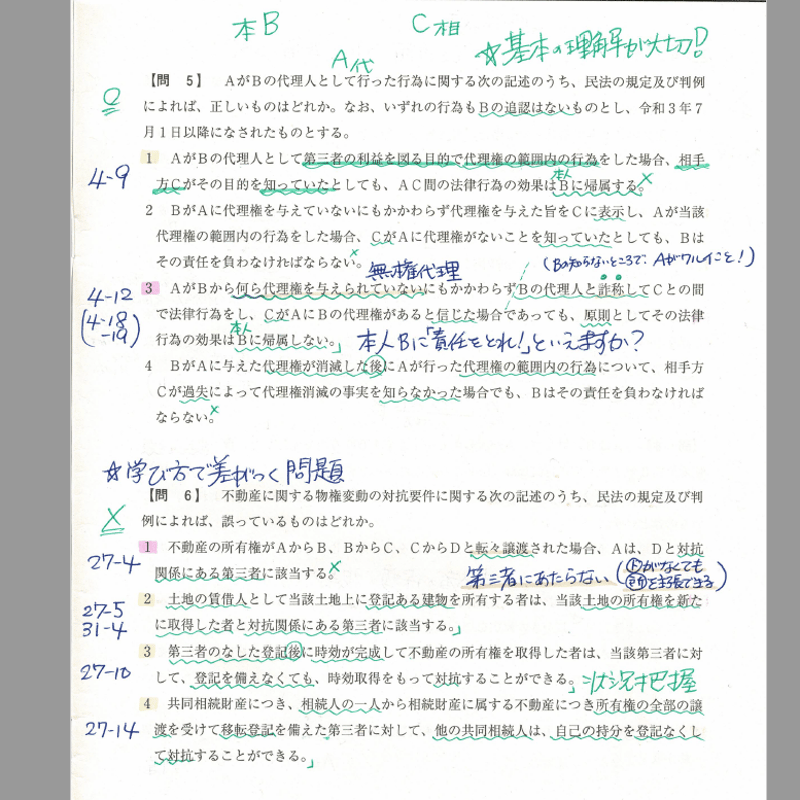 本B
C相
A代
☆基本の理解が大切!
○
【問 5】 AがBの代理人として行った行為に関する次の記述のうち、民法の規定及び判例
によれば、正しいものはどれか。なお、いずれの行為もBの追認はないものとし、令和3年7
月1日以降になされたものとする。
4-9
1 AがBの代理人として第三者の利益を図る目的で代理権の範囲内の行為をした場合、相手
方Cがその目的を知っていたとしても、AC間の法律行為の効果はBに帰属する。×
本人
2 BがAに代理権を与えていないにもかかわらず代理権を与えた旨をCに表示し、Aが当該
代理権の範囲内の行為をした場合、CがAに代理権がないことを知っていたとしても、Bは
その責任を負わなければならない。×
無権代理
(Bの知らないところで、Aがワルイこと!)
4-12
(4-18
-19)
3 AがBから何ら代理権を与えられていないにもかかわらずBの代理人と詐称してCとの間
で法律行為をし、CがAにBの代理権があると信じた場合であっても、原則としてその法律
行為の効果はBに帰属しない。」
本人
本人Bに「責任をとれ!」といえますか?
4 BがAに与えた代理権が消滅した後にAが行った代理権の範囲内の行為について、相手方
Cが過失によって代理権消滅の事実を知らなかった場合でも、Bはその責任を負わなければ
ならない。×
☆学び方で差がつく問題
×
【問 6】 不動産に関する物権変動の対抗要件に関する次の記述のうち、民法の規定及び判
例によれば、誤っているものはどれか。
27-4
1 不動産の所有権がAからB、BからC、CからDと転々譲渡された場合、Aは、Dと対抗
関係にある第三者に該当する。×
第三者にあたらない
(トがなくても
所を主張できる)
27-5
31-4
2 土地の賃借人として当該土地上に登記ある建物を所有する者は、当該土地の所有権を新た
に取得した者と対抗関係にある第三者に該当する。」
27-10
3 第三者のなした登記後に時効が完成して不動産の所有権を取得した者は、当該第三者に対
して、登記を備えなくても、時効取得をもって対抗することができる。」
状況把握
27-14
4 共同相続財産につき、相続人の一人から相続財産に属する不動産につき所有権の全部の譲
渡を受けて移転登記を備えた第三者に対して、他の共同相続人は、自己の持分を登記なくし
て対抗することができる。」